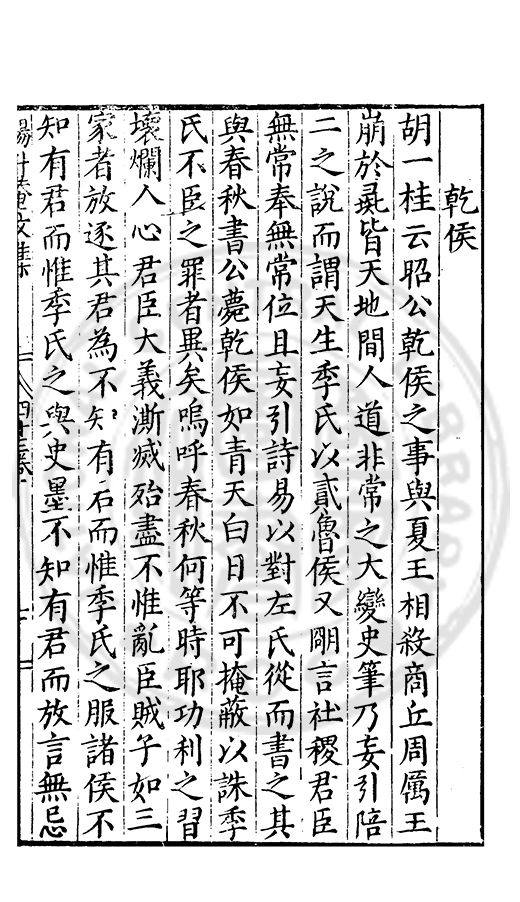 乾侯
胡一桂云昭公乾侯之事與夏王相殺商丘周厲王
崩於彘皆天地間人道非常之大變史筆乃妄引陪
二之說而謂天生季氏以貳魯侯又閘言社稷君臣
無常奉無常位且妄引詩易以對左氏從而書之其
與春秋書公薨乾侯如青天白日不可掩蔽以誅季
氏不臣之罪者異矣嗚呼春秋何等時耶功利之習
壞爛人心君臣大義澌滅殆盡不惟亂臣賊子如三
家者放逐其君為不知有君而惟季氏之服諸侯不
知有君而惟季氏之與史墨不知有君而放言無忌